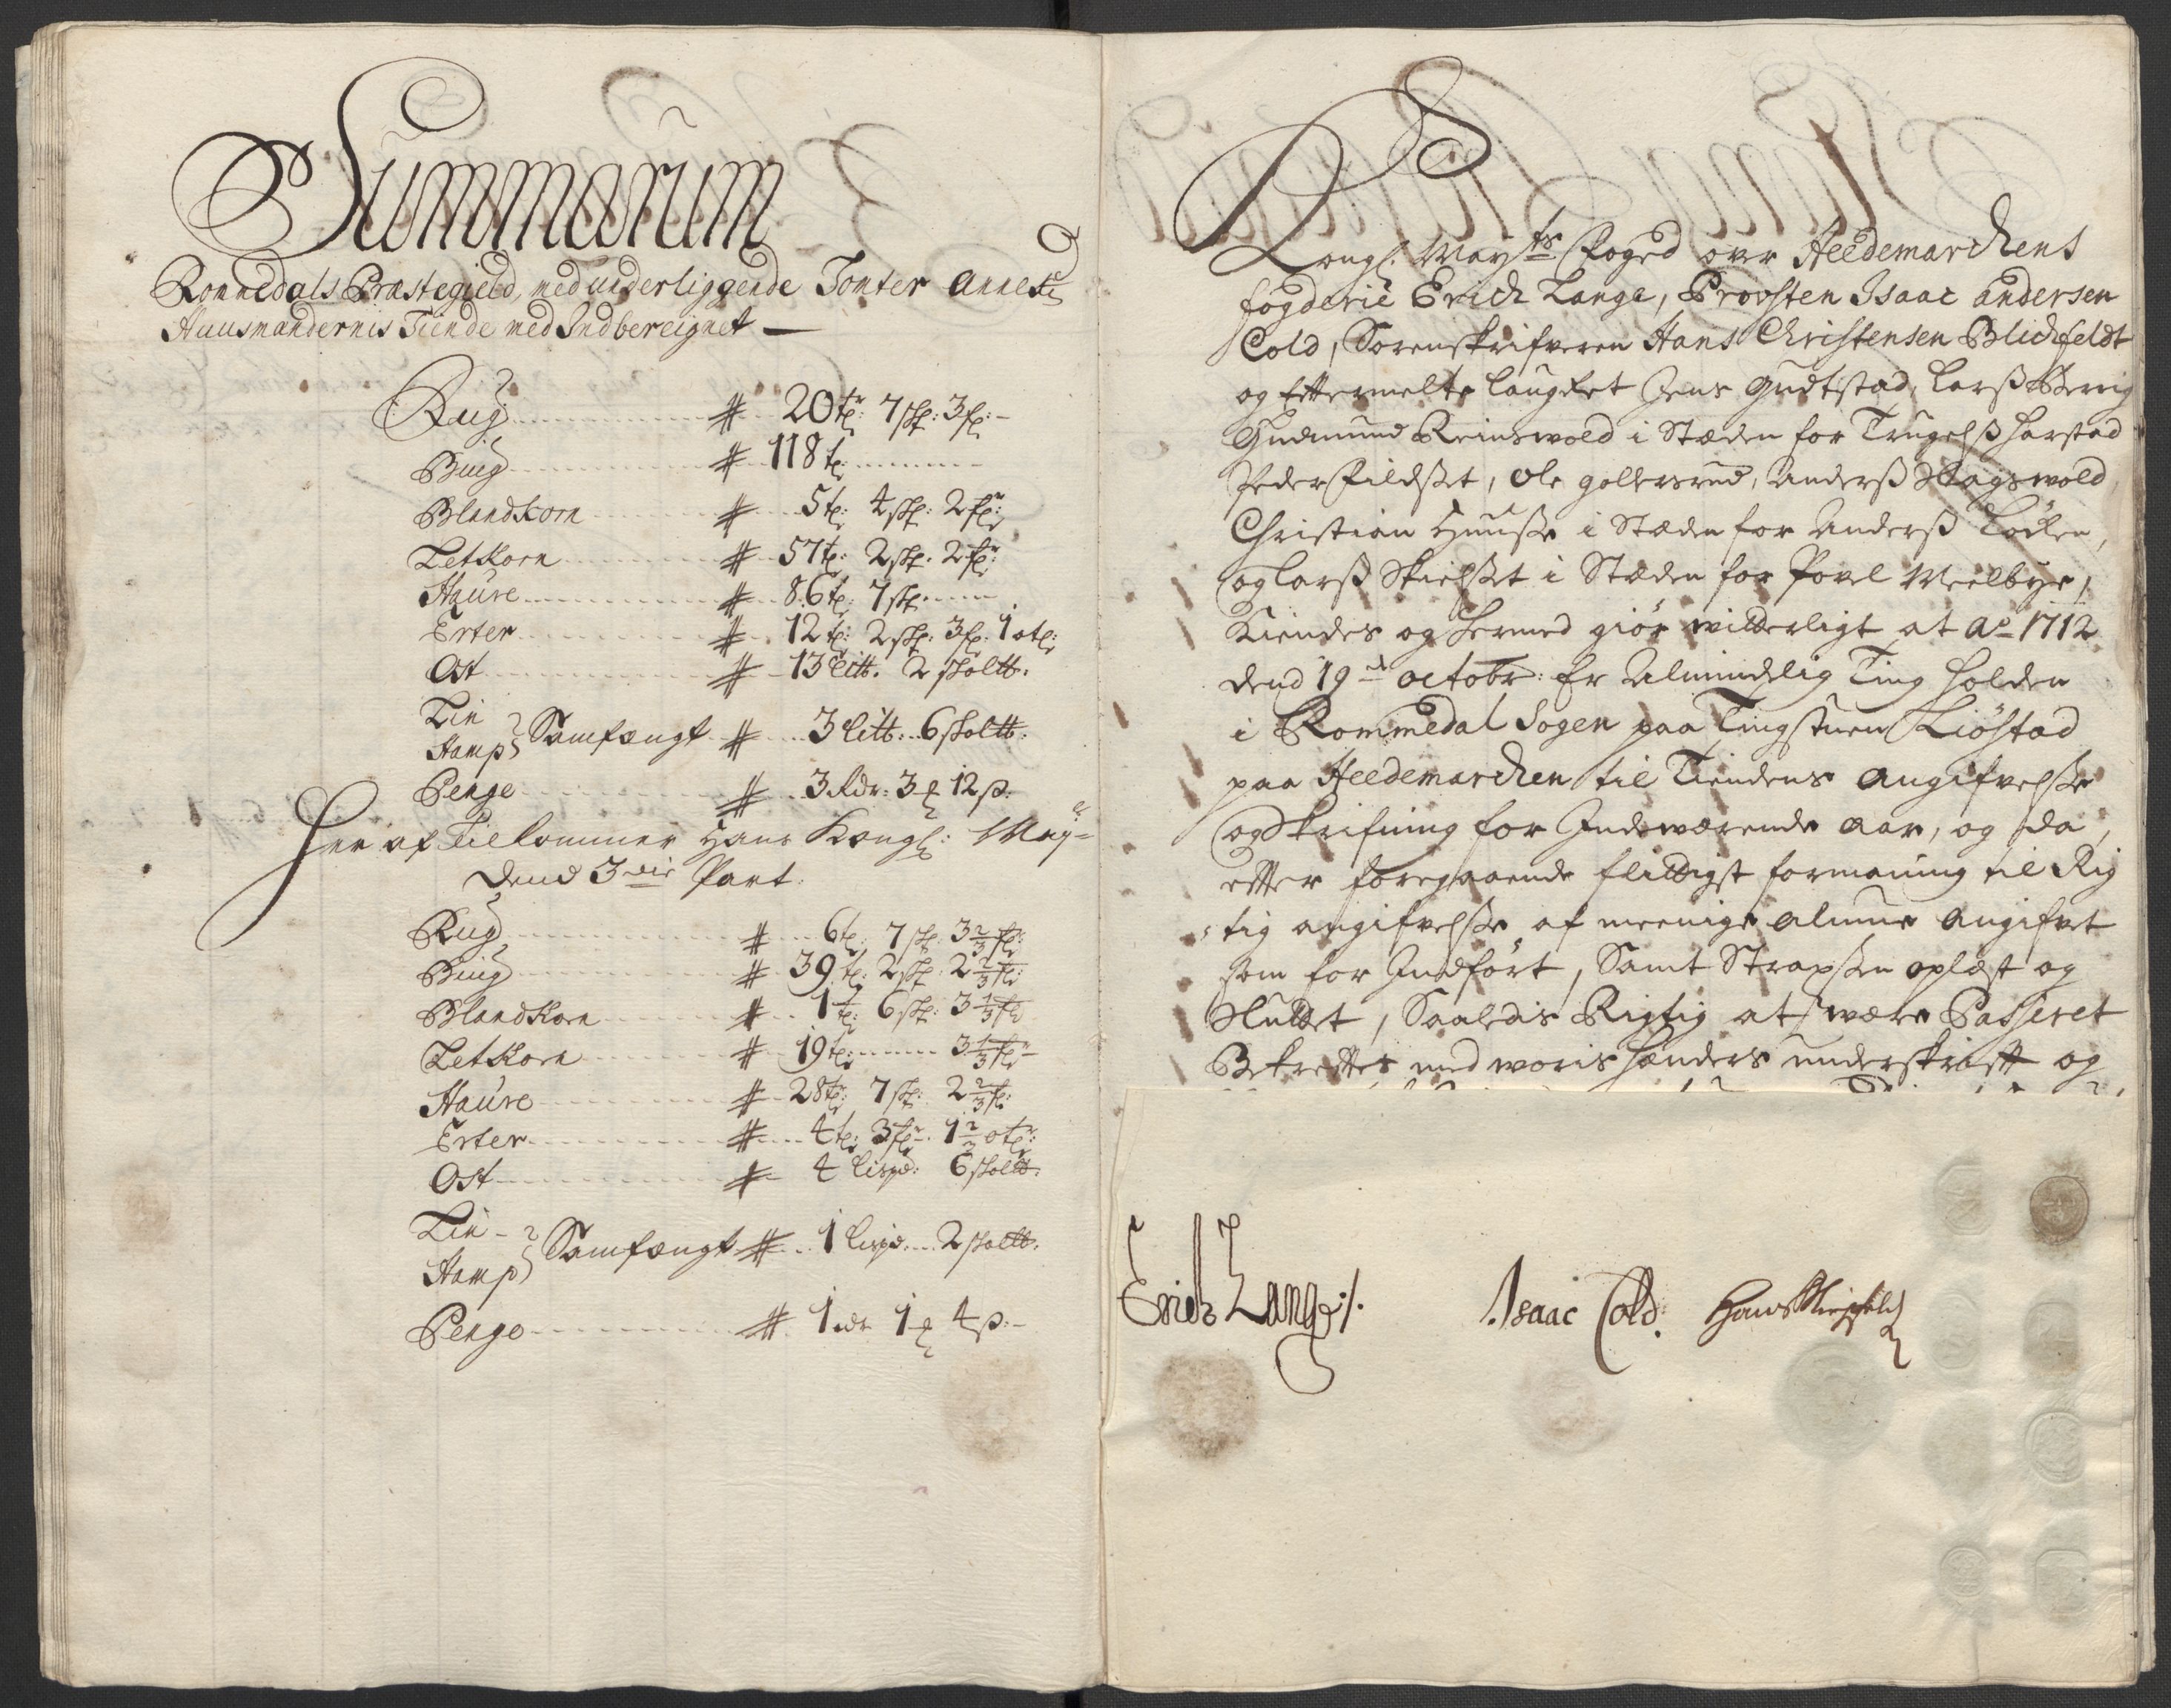 Summarum
Rommedals Præstegield, med underliggende Tomter Annext
Huusmændernis Tiende med Indbereignet —
Rug # 20 tr: 7 skp: 3 fr:
Biug # 118 tr:
Blandkorn # 5 tr: 4 skp: 2 fr:
Letkorn # 57 tr: 2 skp: 2 fr:
Haure # 86 tr: 7 skp:
Erter # 12 tr: 2 skp: 3 fr: 1 otr:
Ost # 13 litt: 2 skoltt:
Lin
Hamp } Samfængt # 3 litt: 6 skoltt:
Penge # 3 Rdr: 3 ₰ 12 ß:
Her af Tilkommer Hans Kongl: May:
dend 3die Part.
Rug # 6 tr: 7 skp: 3 2/3 fr:
Biug # 39 tr: 2 skp: 2 2/3 fr:
Blandkorn # 1 tr: 6 skp: 3 1/3 fr:
Letkorn # 19 tr: 3 1/3 fr:
Haure # 28 tr: 7 skp: 2 2/3 fr:
Erter # 4 tr: 3 fr: 1 2/3 otr:
Ost # 4 lispd: 6 skoltt:
Lin
Hamp } Samfængt # 1 lispd: 2 skoltt:
Penge # 1 rdr 1 ₰ 4 ß:
Kongl: Mayts Foged over Heedemarchens
fogderie Erich Lange, Provsten Isaac Andersen
Cold, Sorenskrifveren Hans Christensen Blichfeldt
og Eftermelte laugret Jens Gudtstad, Larß
Gudmund Reinswold i Stæden for Trugelß Harstad
Peder Fildset, Ole Gollersrud, Anderß Hagswold,
Christian Huuse i Stæden for Anderß Löcken,
og Larß Skielset i Stæden for Povel Meelbye,
Kiendes og hermed giör witterligt at Ao 1712
dend 19de octobr: Er Almindelig Ting holden
i Rommedal Sogen paa Tingstuen Kiöstad
paa Heedemarchen til Tiendens Angifvelse
og Skrifning for Indeværende Aar, og da,
efter foregaaende flittigst formaning til Rig
tig angifvelse af meenige Almue Angifvet
som for Indfört, Samt Strapsen oplæst og
Sluttet, Saaledis Rigtig at være Passeret
Bekreftes med woris hænders underskrift og
Erich Lange /.
Isaac Cold.
Hans Blichfeld